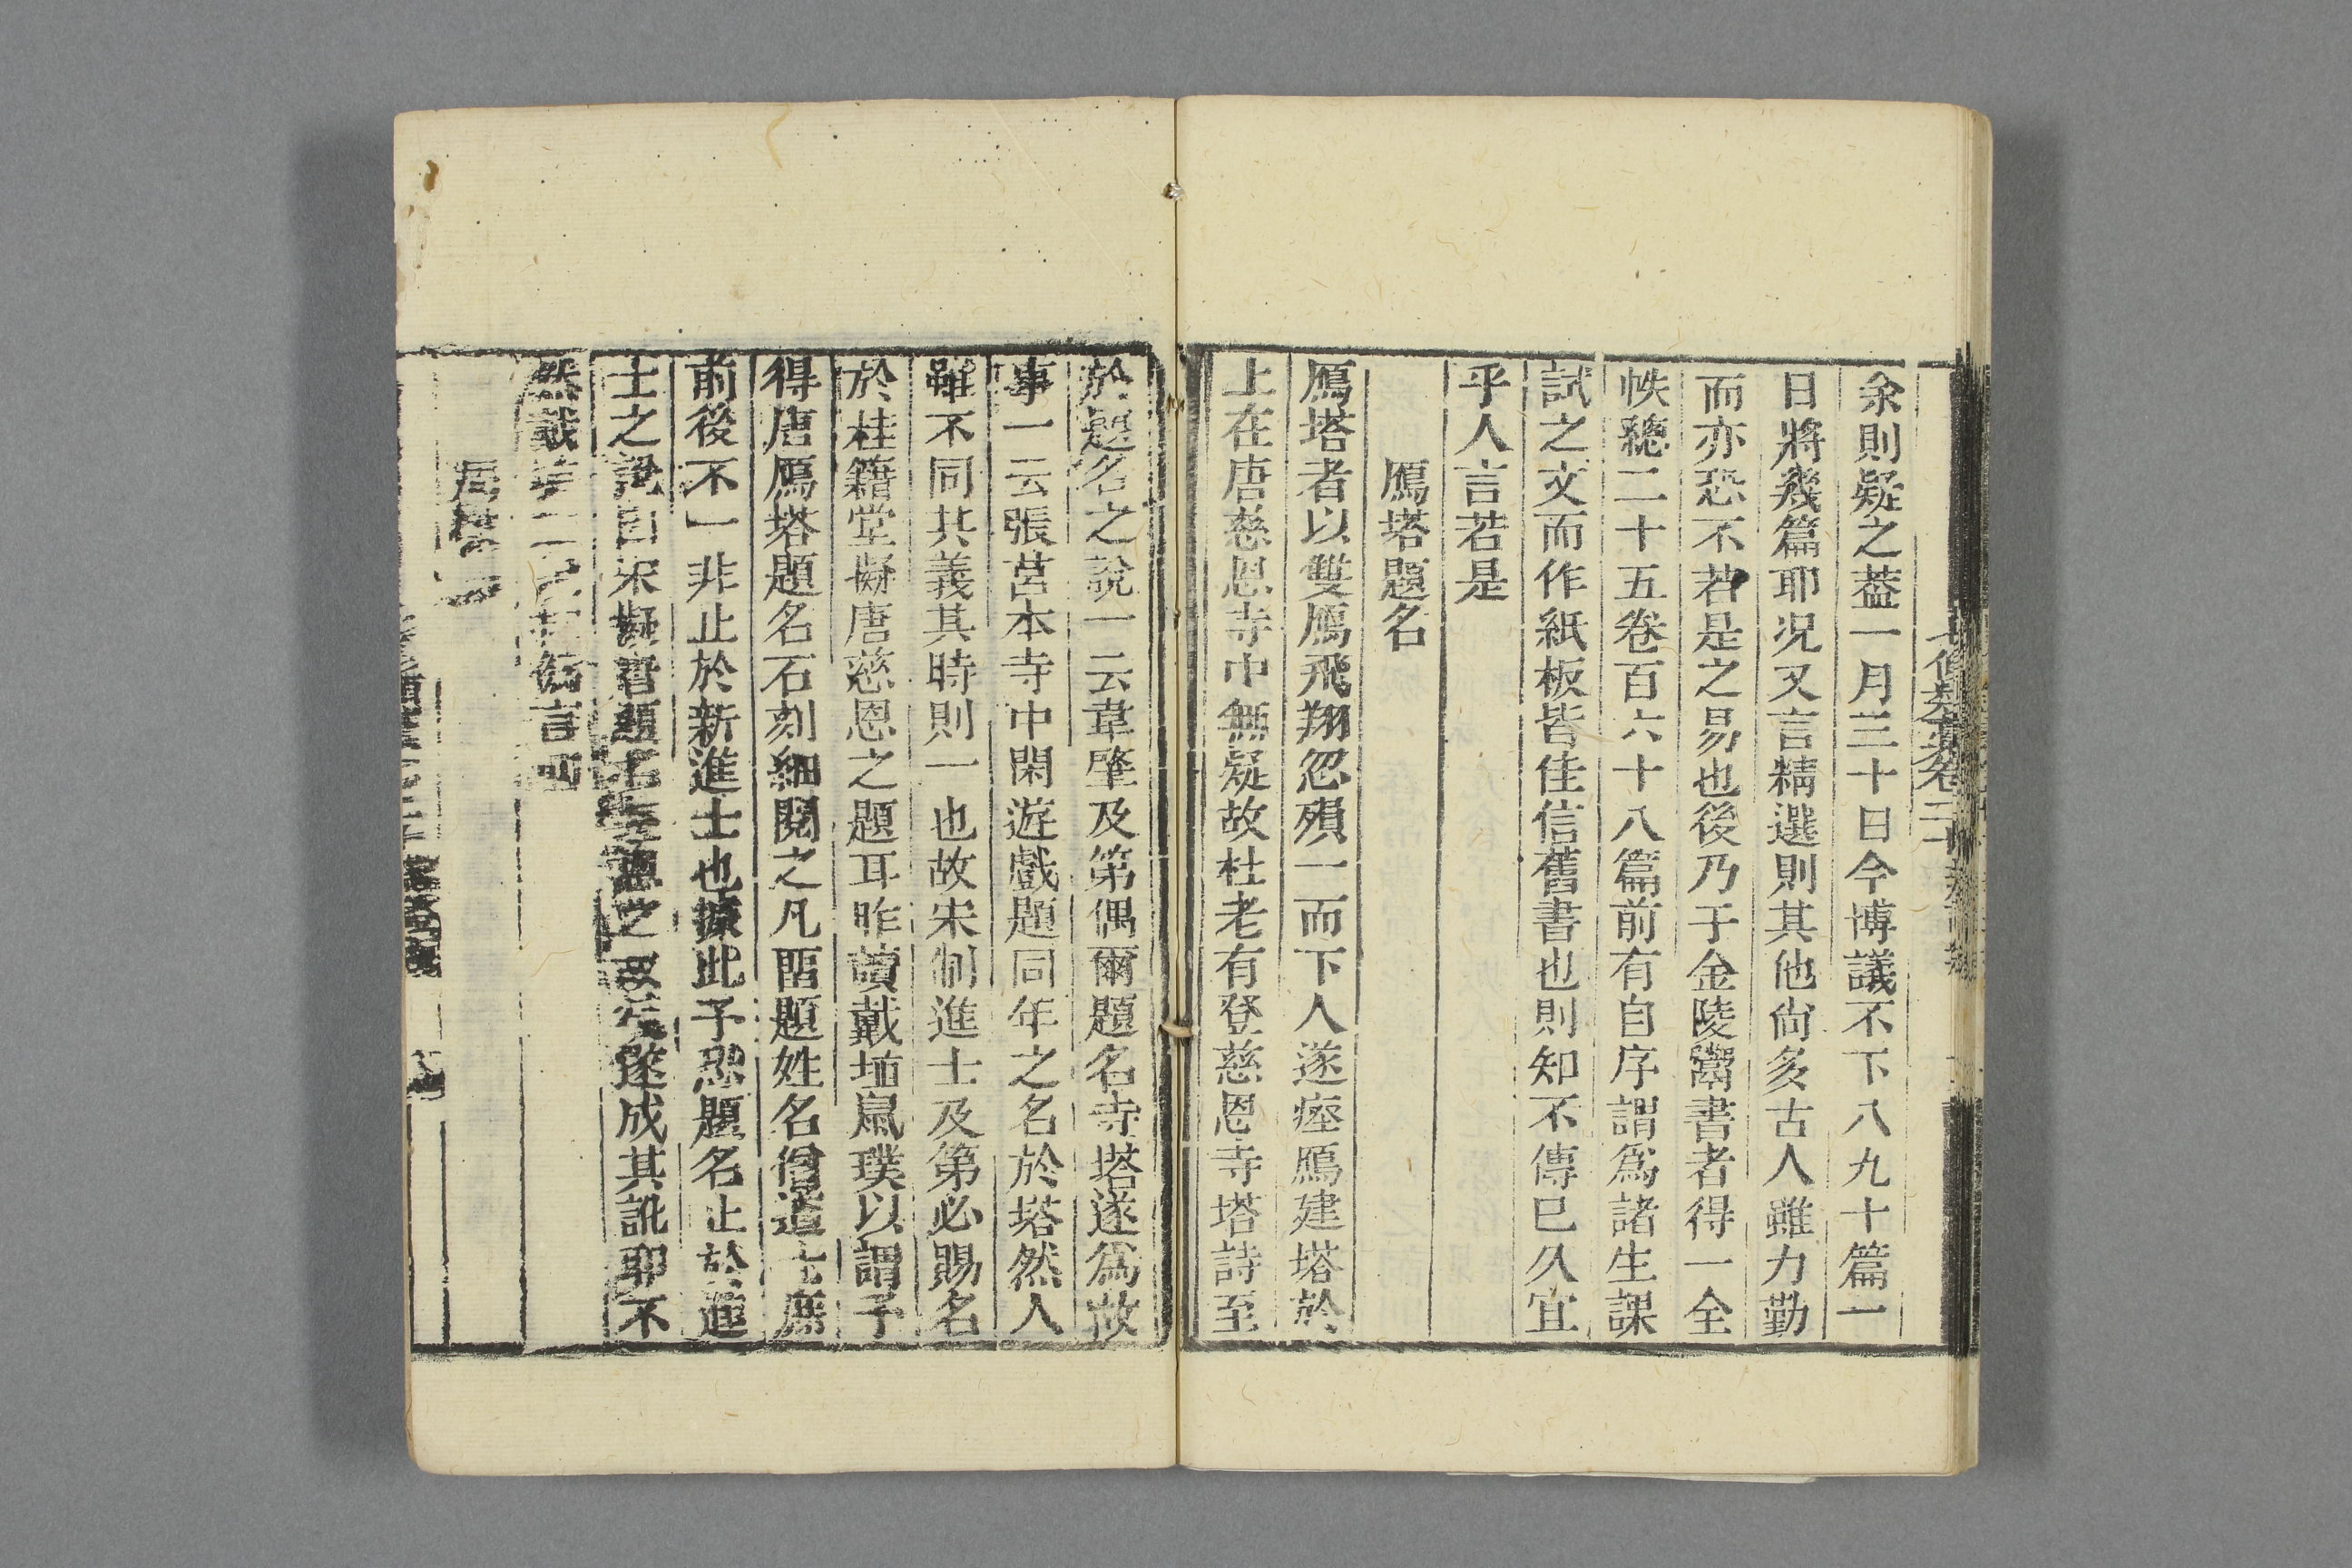 余則疑之葢一月三十日今博議不下八九十篇一
日將幾篇耶况又言精選則其他尙多古人雖力勤
而亦恐不若是之易也後乃于金陵鬻書者得一全
帙總二十五卷百六十八篇前有自序謂爲諸生課
試之文而作紙板皆佳信舊書也則知不傳已久宜
乎人言若是
鴈塔題名
鴈塔者以雙鴈飛翔忽殞一而下人遂瘞鴈建塔於
上在唐慈恩寺中無疑故杜老有登慈恩寺塔詩至
於題名之說一云韋肇及第偶爾題名寺塔遂爲故
事一云張莒本寺中閑遊戲題同年之名於塔然人
雖不同其義其時則一也故宋制進士及第必賜名
於桂籍堂擬唐慈恩之題耳昨讀戴埴鼠璞以謂予
得唐鴈塔題名石刻細閱之凡畱題姓名僧道士庶
前後不一非止於新進士也據此予恐題名止於進
士之說自宋擬唐題名之故遂成其訛耶不
然戴埴言